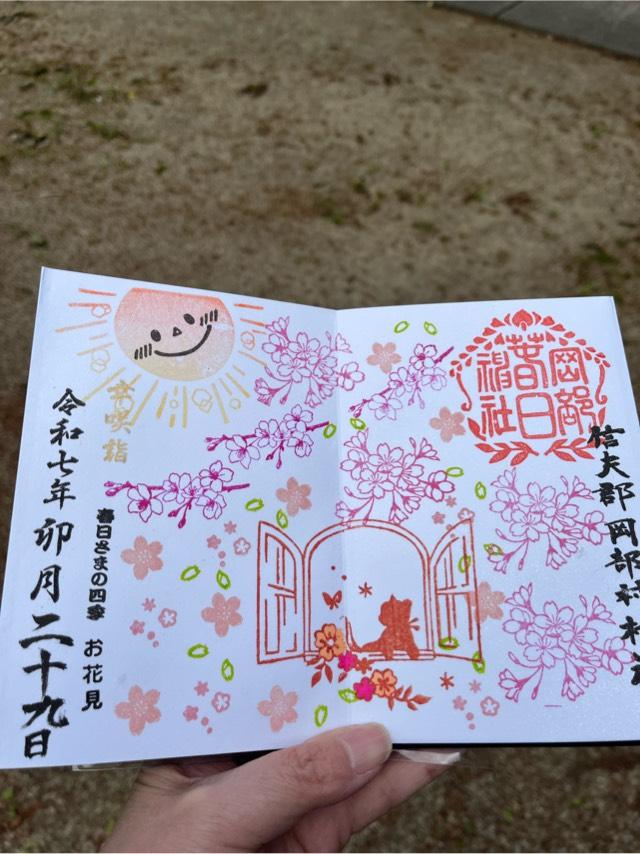 信夫郡岡部村村
岡部
春日
神社
幸咲詣
春日さまの四季 お花見
令和七年 卯月二十九日